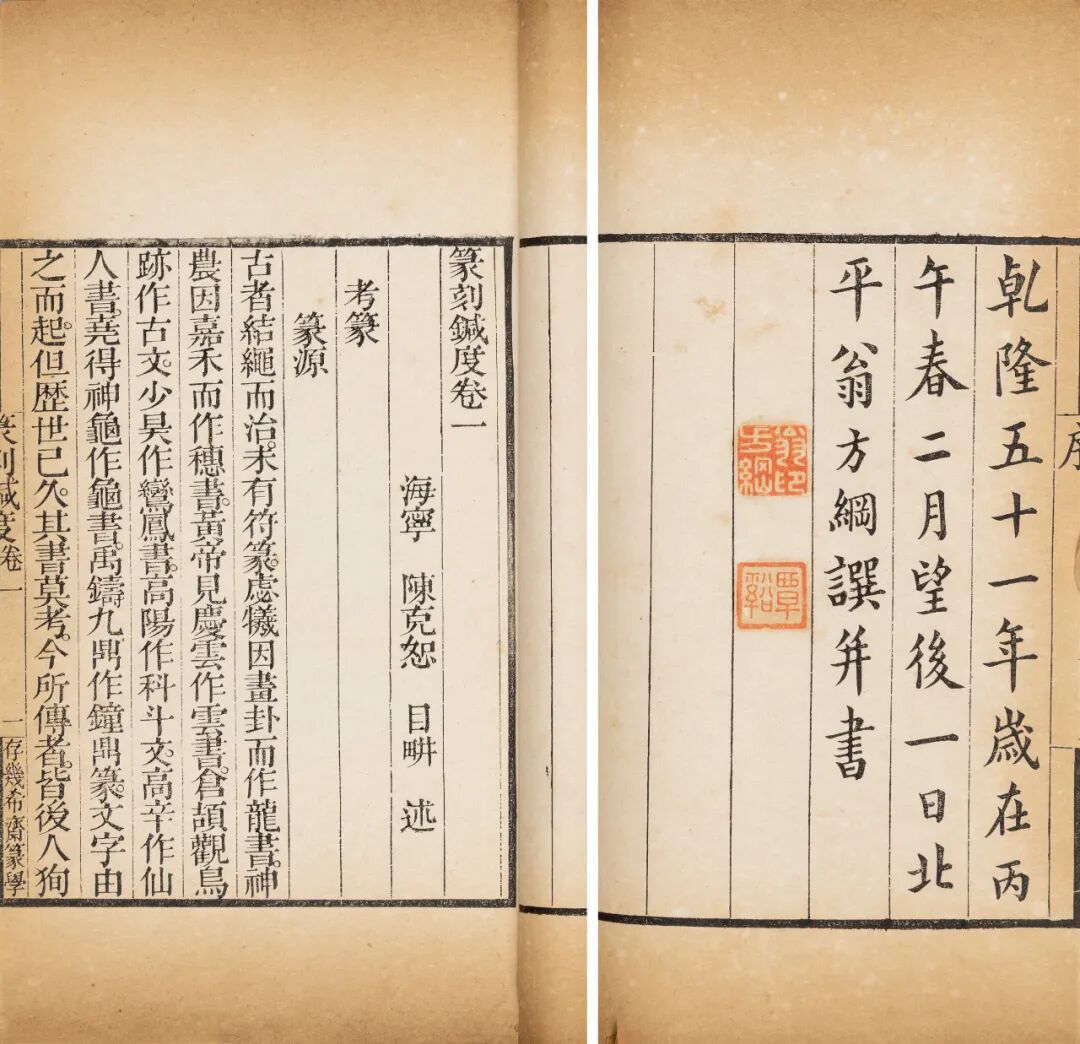 序
乹隆五十一年歲在丙
午春二月望後一日北
平翁方綱譔并書
翁方綱印
覃谿
篆刻鍼度卷一
海寧 陳克恕 目畊 述
考篆
篆源
古者結繩而治。未有符篆。虙犧因畫卦而作龍書。神
農因嘉禾而作穗書。黃帝見慶雲作雲書。倉頡觀鳥
跡作古文。少昊作鸞鳳書。高陽作科斗文。高辛作仙
人書。堯得神龜作龜書。禹鑄九鼎作鐘鼎篆。文字由
之而起。但歷世已久。其書莫考。今所傳者。皆後人狥
篆刻鍼度卷一 一 存幾希齋篆學